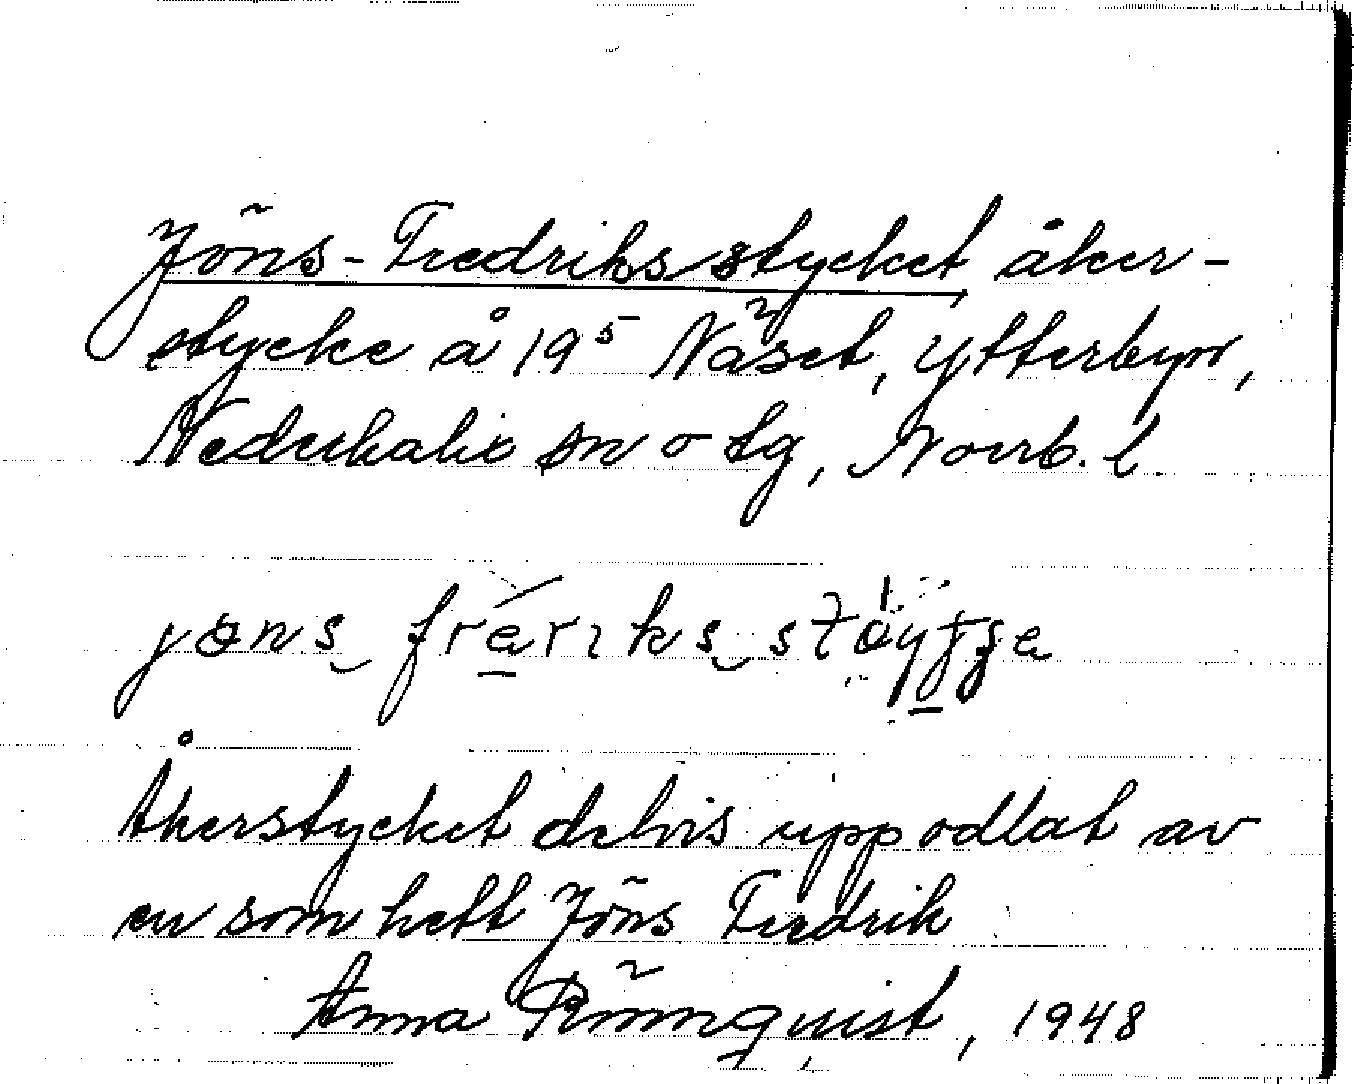 Jöns-Fredriksstycket, åker-
stycke å 19⁵ Näset, Ytterbyn,
Nederkalix sn o tg, Norrb. l.
jøns fräriks
Åkerstycket delvis uppodlat av
en som hett Jöns Fredrik
Anna Rönnquist, 1948